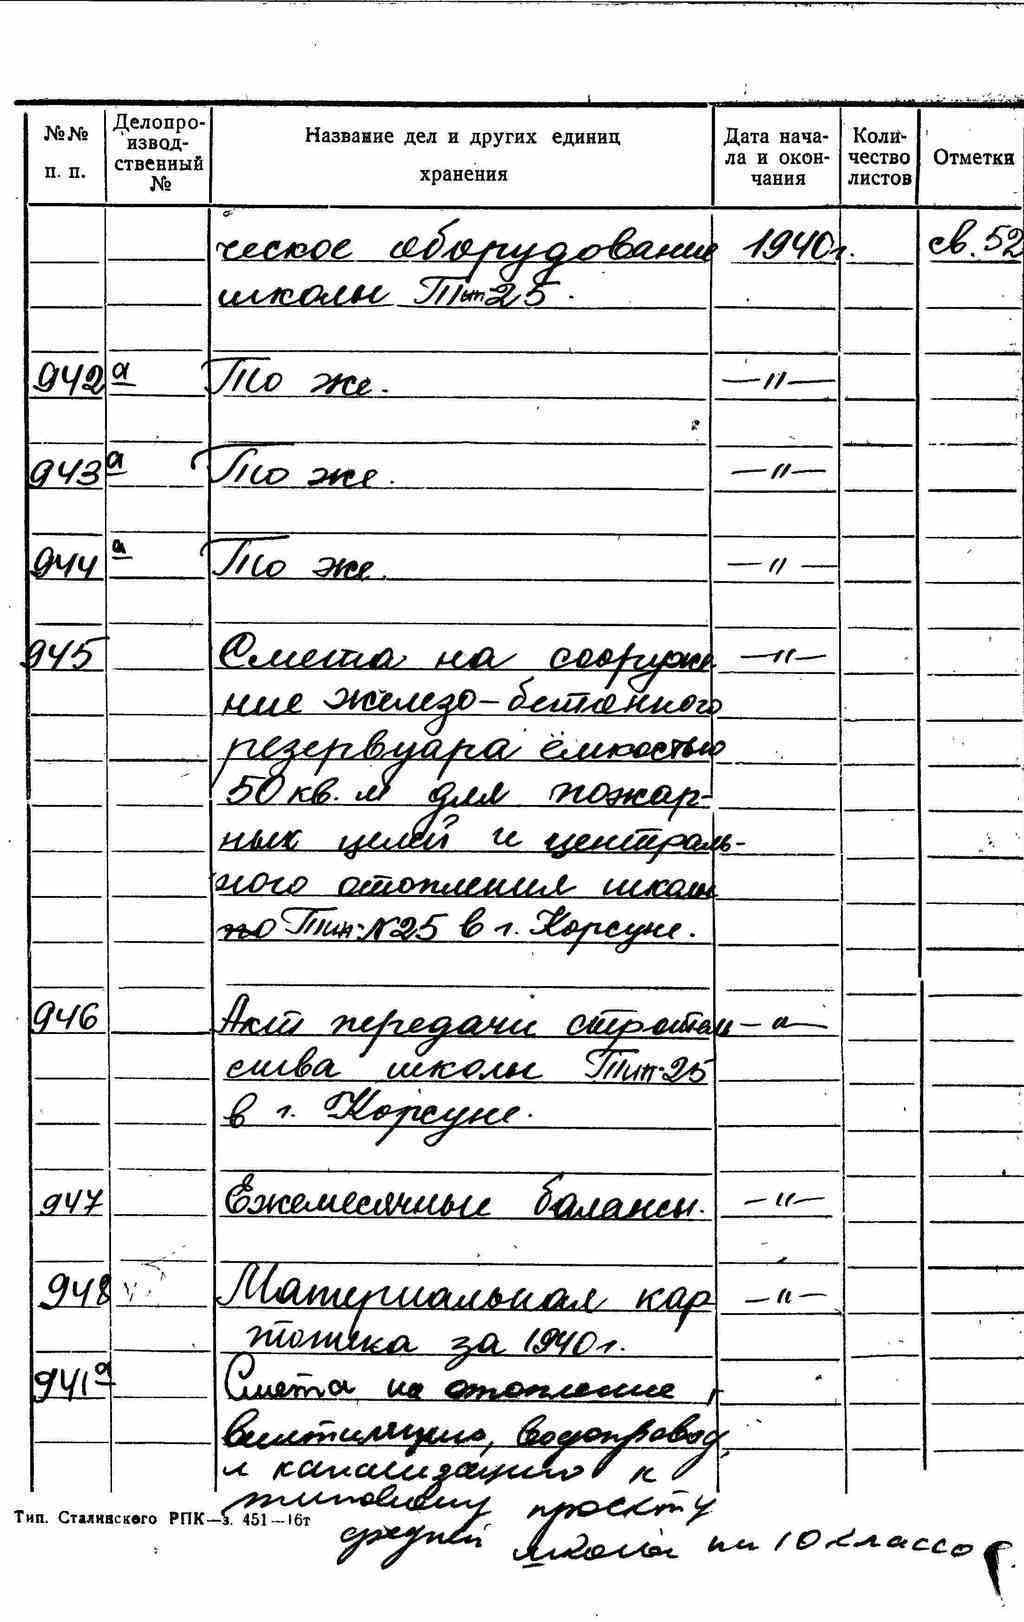 №№ п. п. Делопро-извод-ственный № Название дел и других единиц хранения Дата нача-ла и окон-чания Коли-чество листов Отметки
ческое оборудование 1940г. св. 52
школы Тип-25.
942 а То же. —"—
943 а То же. —"—
944 а То же. —"—
945 Смета на сооруже —"—
ние железо-бетонного
резервуара ёмкостью
50 кв. м для пожар-
ных целей и централь-
ного отопления школы
Тип-№25 в г. Корсуне.
946 Акт передачи строитель —"—
ства школы Тип-25
в г. Корсуне.
947 Ежемесячные балансы. —"—
948 Материальная кар —"—
тотека за 1940г.
941 а Смета на отопление,
вентиляцию, водопровод,
и канализацию к
типовому проекту
Тип. Сталинского РПК—з. 451—16т
средней школы на 10 классо